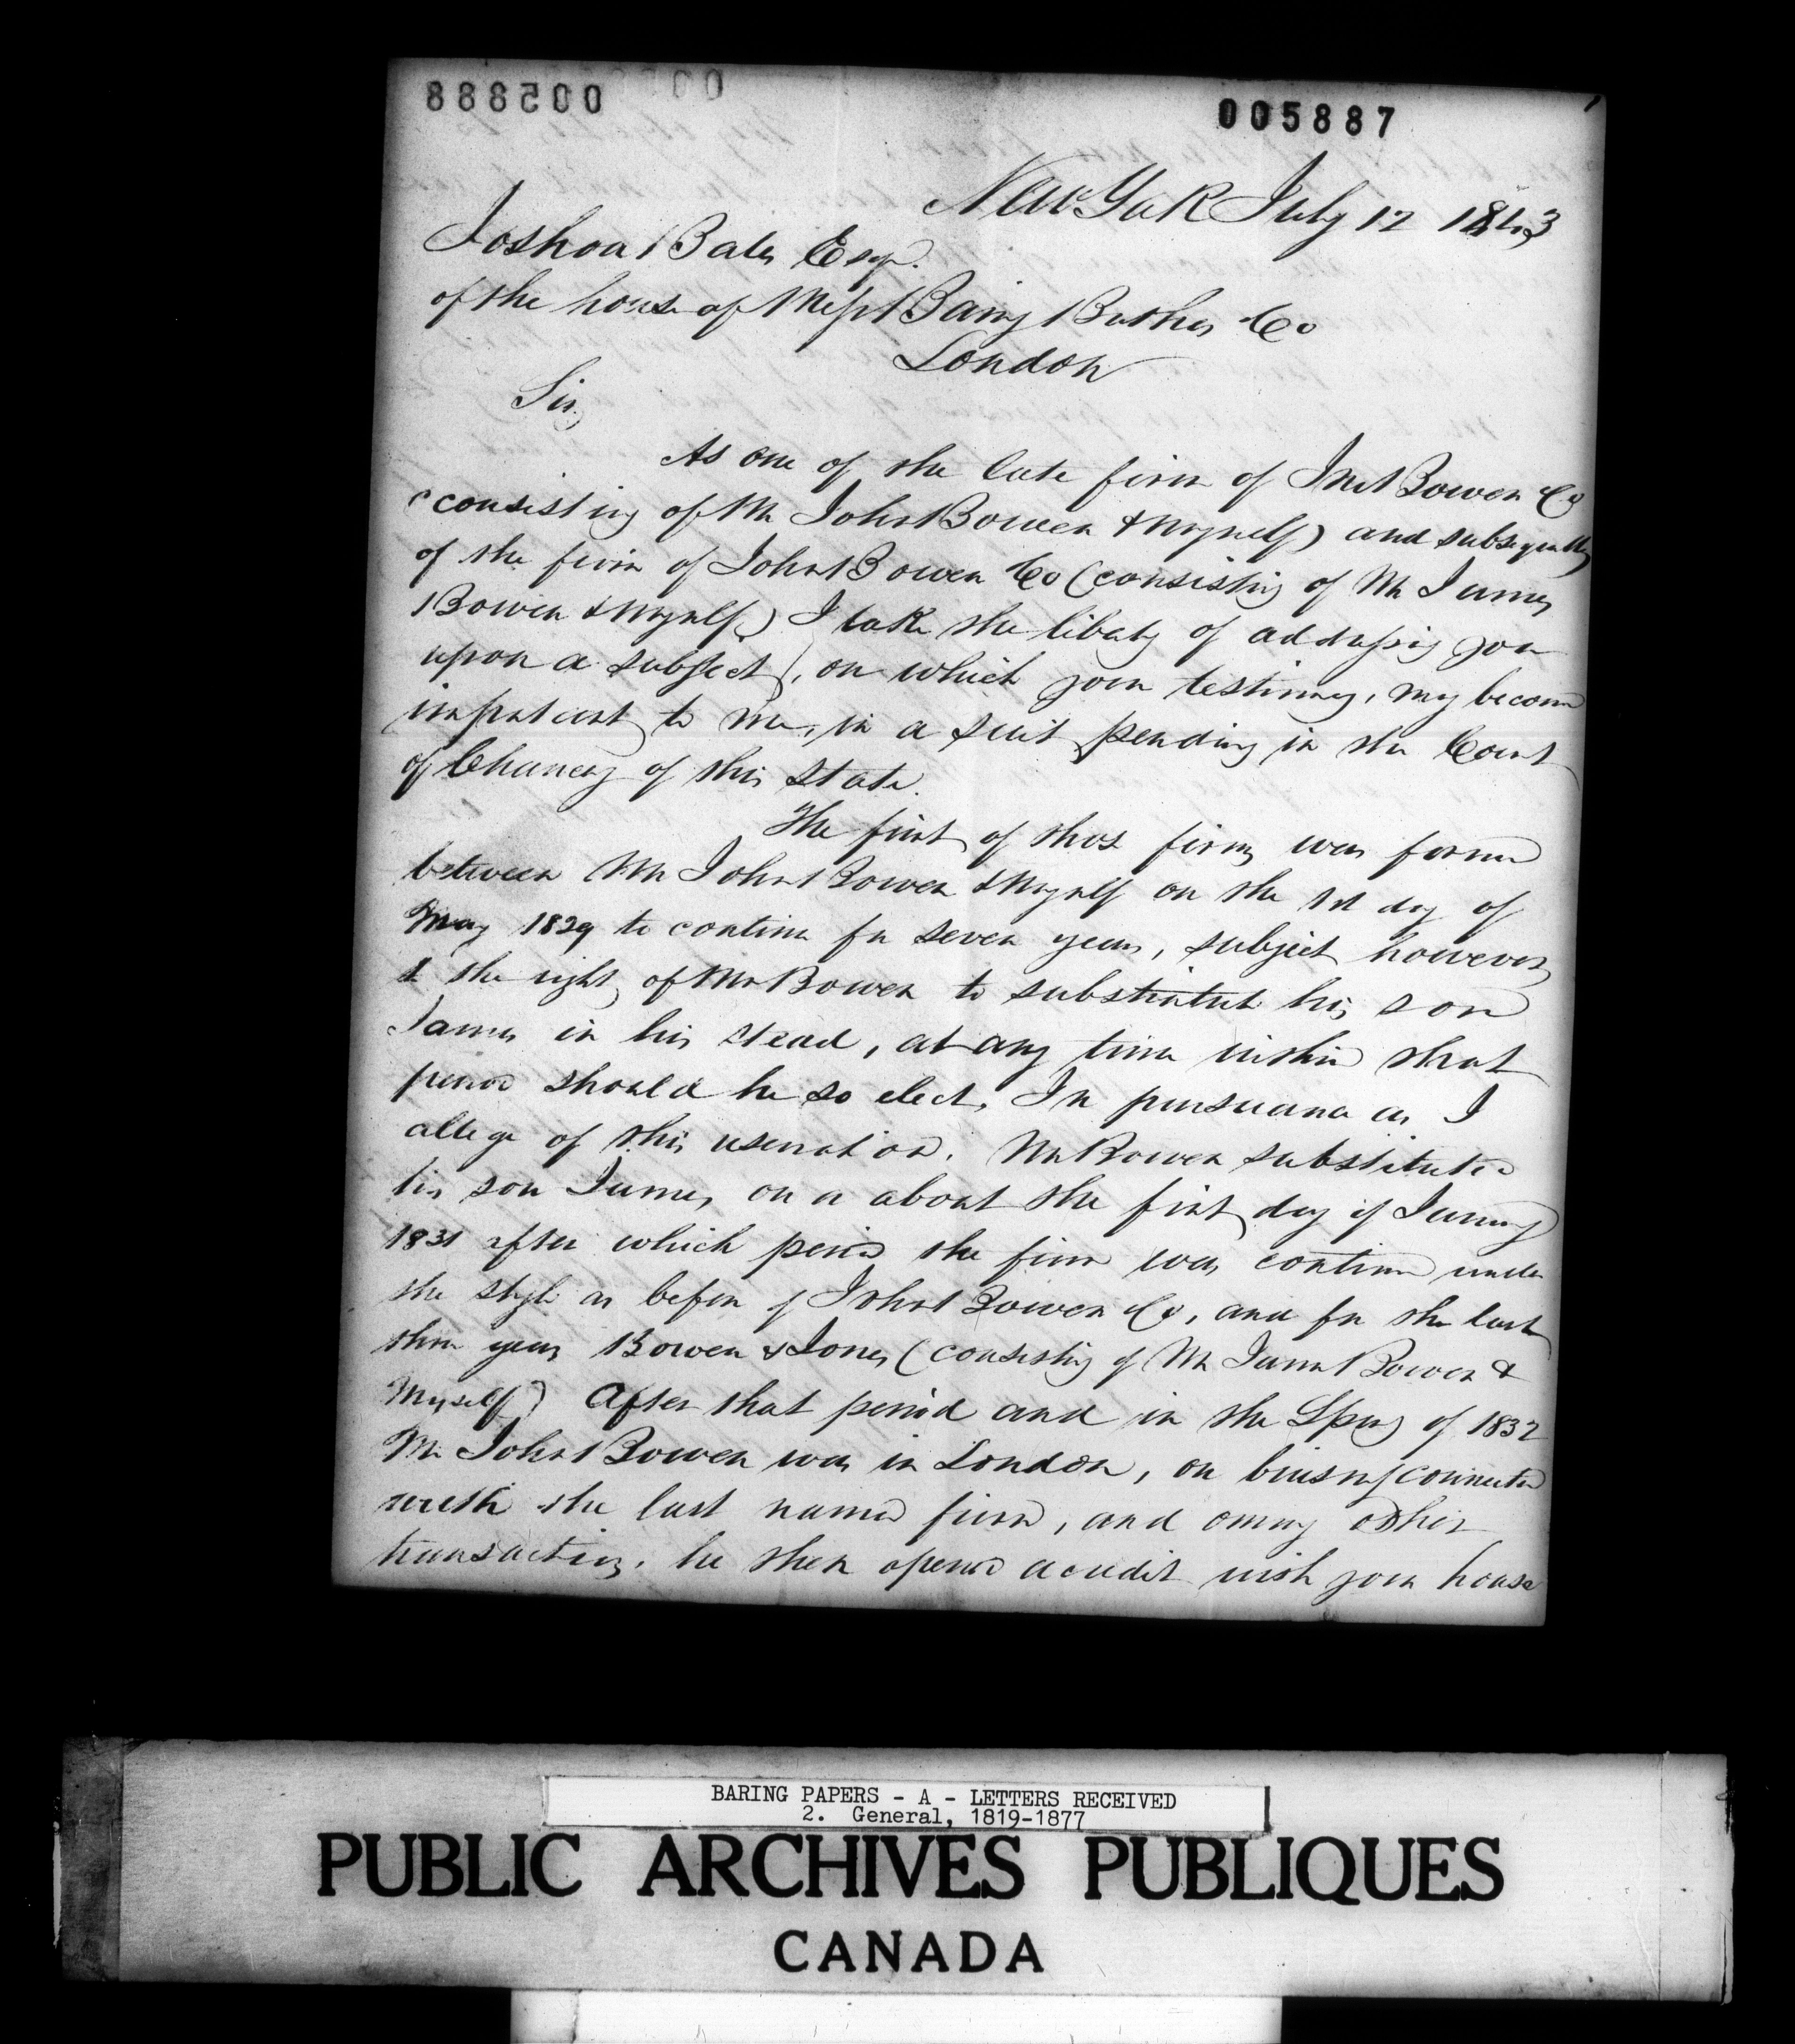 005888
005887
New York July 12 1843
Joshua Bates Esqr.
of the house of Messrs Baring Brothers & Co
London
Sir,
As one of the late firm of Jno Bowen & Co
(consisting of Mr John Bowen & myself) and subsequently
of the firm of John Bowen & Co (consisting of Mr James
Bowen & myself) I take the liberty of addressing you
upon a subject, on which your testimony, may become
important to me, in a suit pending in the Court
of Chancery of this State.
The first of those firms was formed
between Mr John Bowen & myself on the 1st day of
May 1829 to continue for seven years, subject however
to the right of Mr Bowen to substitute his son
James in his stead, at any time within that
period should he so elect. In pursuance as I
allege of this reservation. Mr Bowen substituted
his son James, on or about the first day of January
1831 after which period the firm was continued under
the style as before of John Bowen & Co, and for the last
three years Bowen & Jones (consisting of Mr James Bowen &
myself) After that period and in the Spring of 1832
Mr John Bowen was in London, on business connected
with the last named firm, and among other
transactions, he then opened a credit with your house
BARING PAPERS - A - LETTERS RECEIVED
2. General, 1819-1877
PUBLIC ARCHIVES PUBLIQUES
CANADA